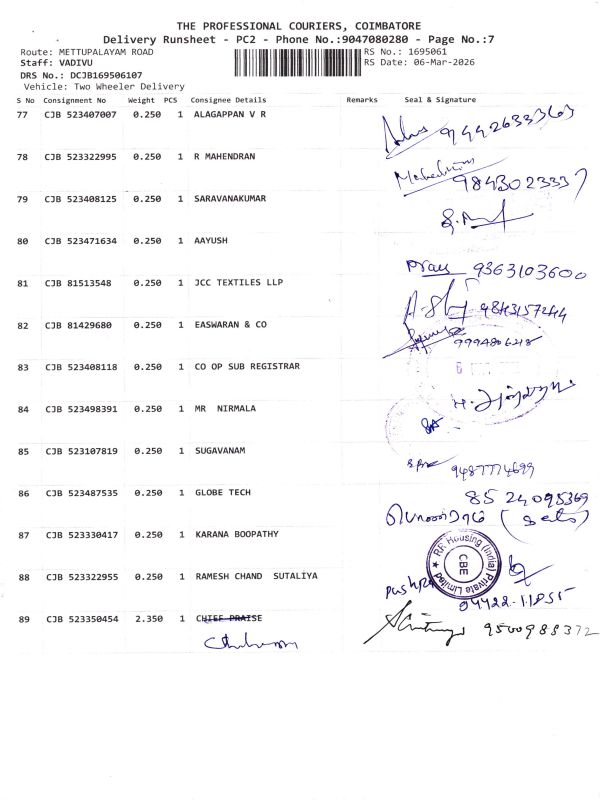 THE PROFESSIONAL COURIERS, COIMBATORE
Delivery Runsheet - PC2 - Phone No.:9047080280 - Page No.:7
Route: METTUPALAYAM ROAD RS No.: 1695061
Staff: VADIVU RS Date: 06-Mar-2026
DRS No.: DCJB169506107
Vehicle: Two Wheeler Delivery
S No Consignment No Weight PCS Consignee Details Remarks Seal & Signature
77 CJB 523407007 0.250 1 ALAGAPPAN V R
78 CJB 523322995 0.250 1 R MAHENDRAN
Mahendran 9843023337
79 CJB 523408125 0.250 1 SARAVANAKUMAR
80 CJB 523471634 0.250 1 AAYUSH
9363103600
81 CJB 81513548 0.250 1 JCC TEXTILES LLP
82 CJB 81429680 0.250 1 EASWARAN & CO
83 CJB 523408118 0.250 1 CO OP SUB REGISTRAR
84 CJB 523498391 0.250 1 MR NIRMALA
85 CJB 523107819 0.250 1 SUGAVANAM
9487774699
86 CJB 523487535 0.250 1 GLOBE TECH
85 24095369
87 CJB 523330417 0.250 1 KARANA BOOPATHY
R.F. Housing (India) Private Limited
CBE
88 CJB 523322955 0.250 1 RAMESH CHAND SUTALIYA
Pushpa
89 CJB 523350454 2.350 1 CHIEF PRAISE
9500988372